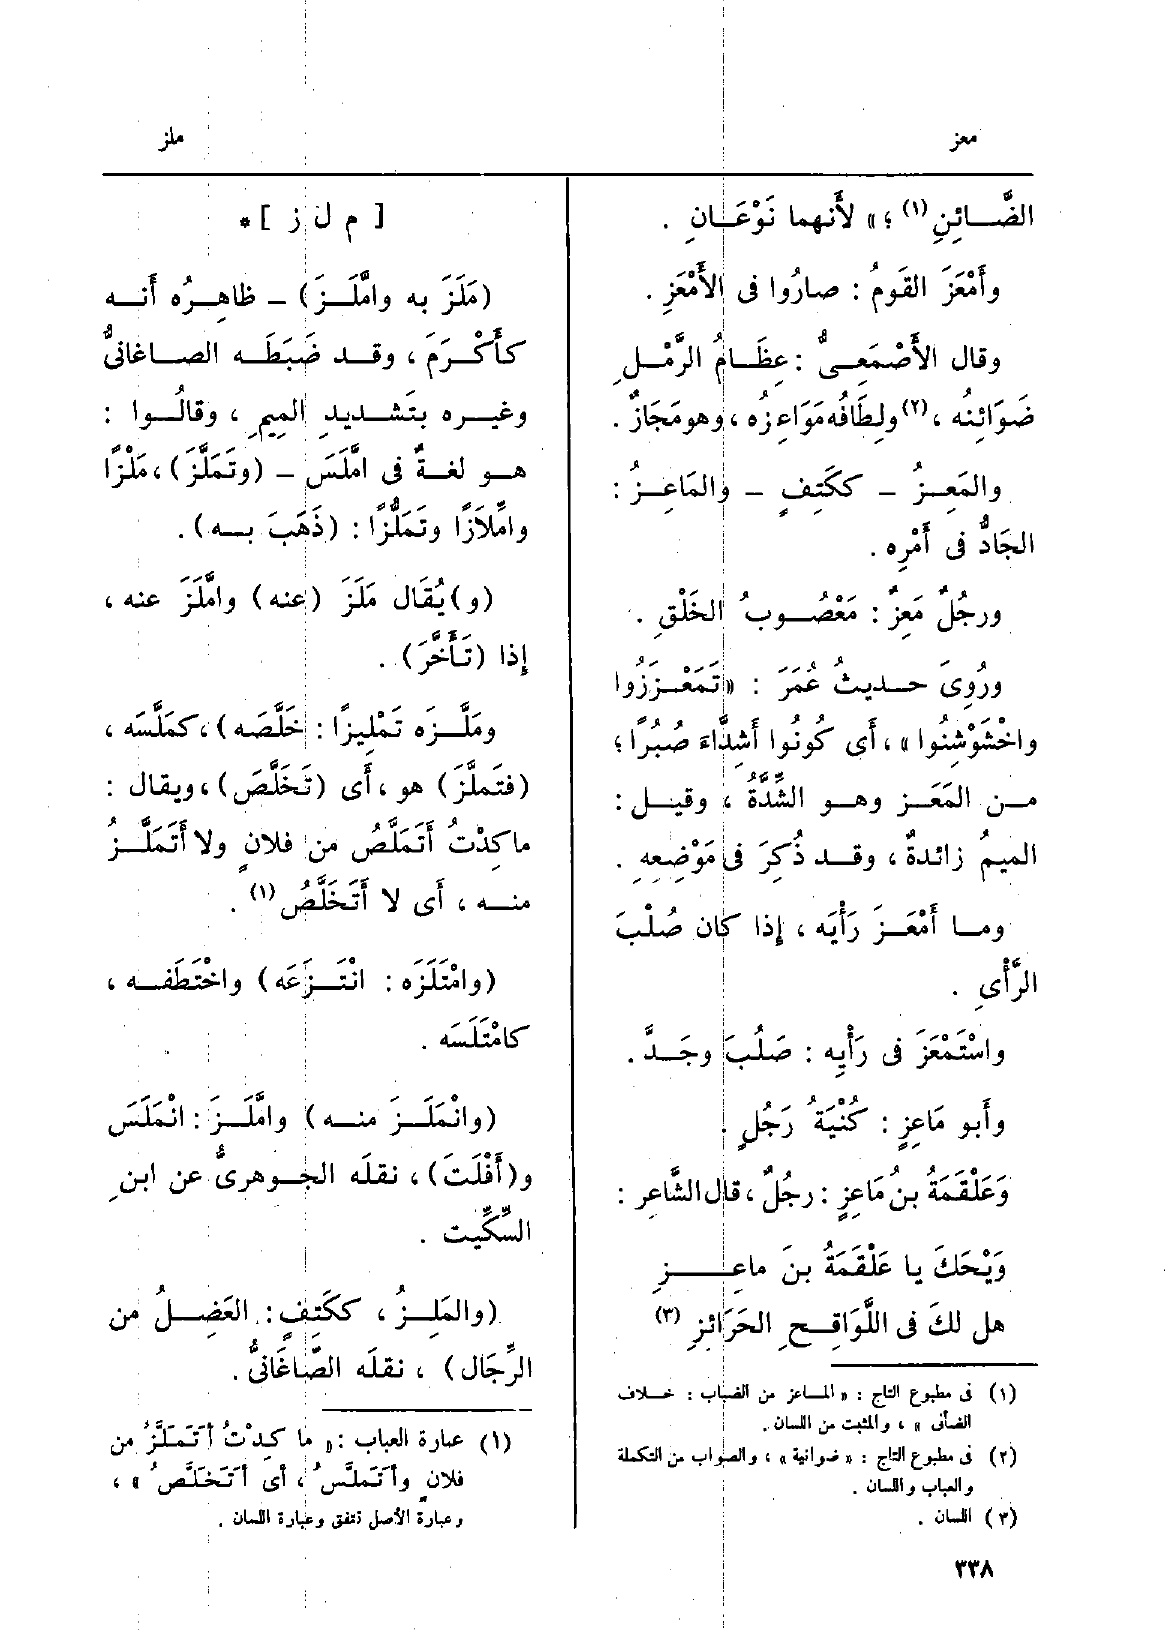 معز
ملز
الضَّائِنِ (١) ؛ » لأَنهما نَوْعَانِ .
وأَمْعَزَ القومُ : صارُوا فى الأَمْعَزِ .
وقال الأَصْمَعِىُّ : عِظَامُ الرَّمْلِ
ضَوَائِنُه ، (٢) ولِطَافُه مَوَاعِزُه ، وهو مَجَازٌ .
والمَعِزُ – ككَتِفٍ – والمَاعِزُ :
الجَادُّ فى أَمْرِه .
ورجُلٌ مَعِزٌ : مَعْصُوبُ الخَلْقِ .
ورُوِىَ حديثُ عُمَرَ : « تَمَعْزَزُوا
واخْشَوْشِنُوا » ، أَى كُونُوا أَشِدَّاءَ صُبُرًا ؛
من المَعَزِ وهو الشِّدَّةُ ، وقيل :
الميمُ زائدةٌ ، وقد ذُكِرَ فى مَوْضِعِه .
وما أَمْعَزَ رَأْيَه ، إِذا كان صُلْبَ
الرَّأْىِ .
واسْتَمْعَزَ فى رَأْيِه : صَلُبَ وجَدَّ .
وأَبو مَاعِزٍ : كُنْيَةُ رَجُلٍ .
وَعَلْقَمَةُ بنُ مَاعِزٍ : رجُلٌ ، قال الشَّاعر :
وَيْحَكَ يا عَلْقَمَةُ بنَ ماعِزِ
هل لكَ فى اللَّوَاقِحِ الحَرَائِزِ (٣)
(١) فى مطبوع التاج : « الماعز من الضباب : خلاف
الضأنى » ، والمثبت من اللسان .
(٢) فى مطبوع التاج : « ضوانية » ، والصواب من التكملة
والعباب واللسان .
(٣) اللسان .
[ م ل ز ] *
(مَلَزَ به وامَّلَزَ) – ظاهِرُه أَنه
كأَكْرَمَ ، وقد ضَبَطَه الصاغانىُّ
وغيره بتَشديدِ الميمِ ، وقالُوا :
هو لغةٌ فى امَّلَسَ – (وتَمَلَّزَ) ، مَلْزًا
وامِّلاَزًا وتَمَلُّزًا : (ذَهَبَ به) .
(و) يُقَال مَلَزَ (عنه) وامَّلَزَ عنه ،
إِذا (تَأَخَّرَ) .
ومَلَّزَه تَمْلِيزًا : خَلَّصَه) ، كمَلَّسَه ،
(فتَملَّزَ) هو ، أَى (تَخَلَّصَ) ، ويقال :
ماكِدْتُ أَتَمَلَّصُ من فلانٍ ولا أَتَمَلَّزُ
منه ، أَى لا أَتَخَلَّصُ (١) .
(وامْتَلَزَه : انْتَزَعَه) واخْتَطَفه ،
كامْتَلَسَه .
(وانْمَلَزَ منه) وامَّلَزَ : انْمَلَسَ
و(أَفْلَتَ) ، نقلَه الجوهرىُّ عن ابن
السِّكِّيت .
(والمَلِزُ ، ككَتِفٍ : العَضِلُ من
الرِّجَال) ، نقلَه الصَّاغَانىُّ .
(١) عبارة العباب : « ما كدْتُ أتَمَلَّزُ من
فلان وأتَملَّسُ ، أى أتَخَلَّصُ » ،
وعبارة الأصل تتفق وعبارة اللسان .
٣٣٨